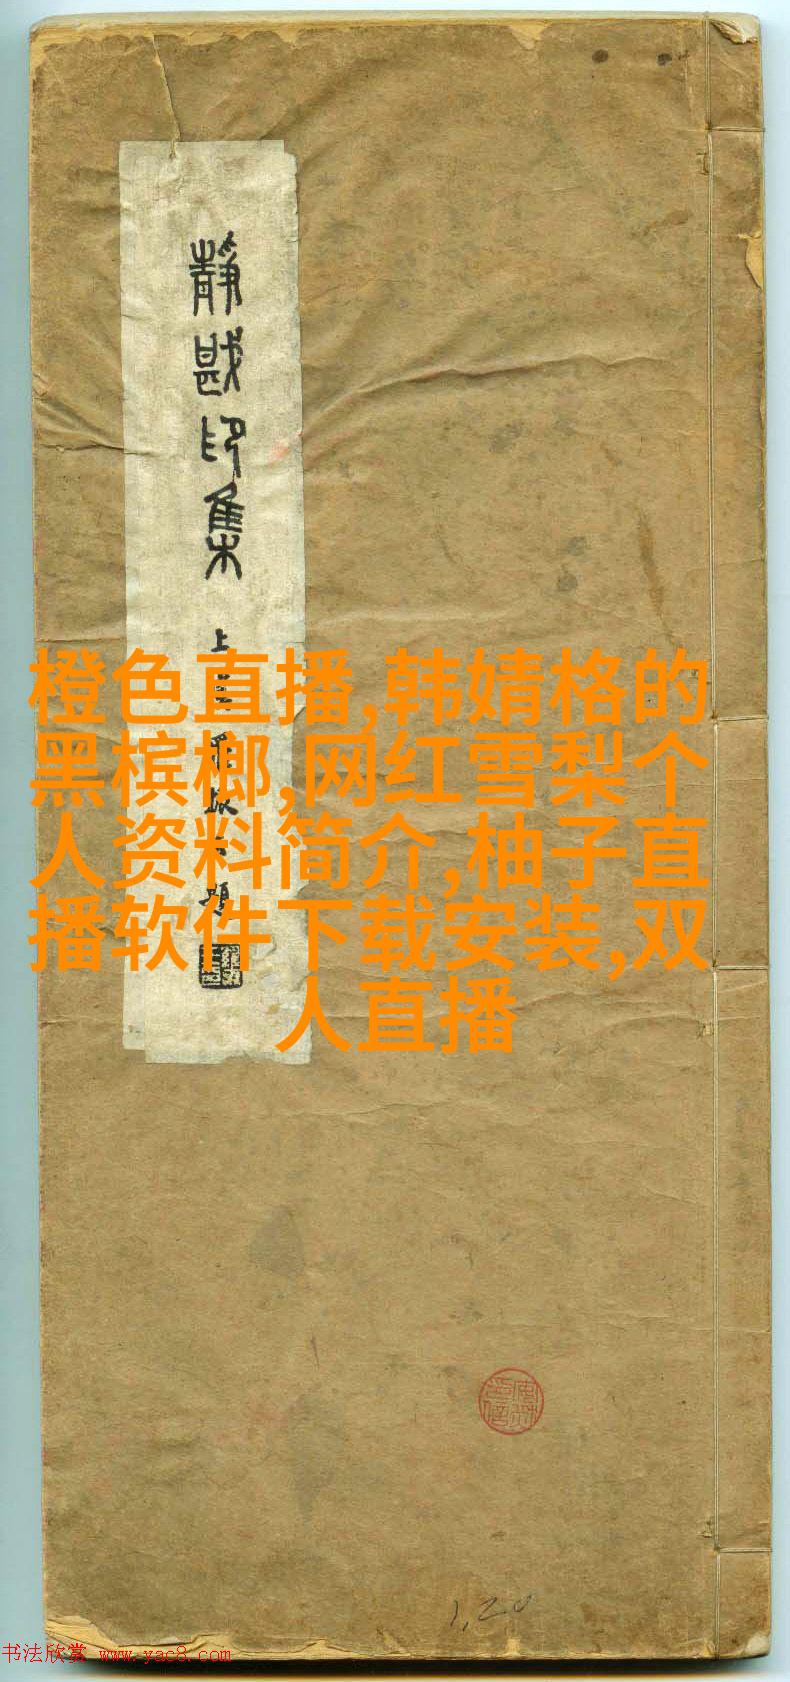 静戡印集
橙色直播,韩婧格的
黑槟榔,网红雪梨个
人资料简介,柚子直
播软件下载安装,双
人直播
1,20
书法欣赏 www.yac8.com